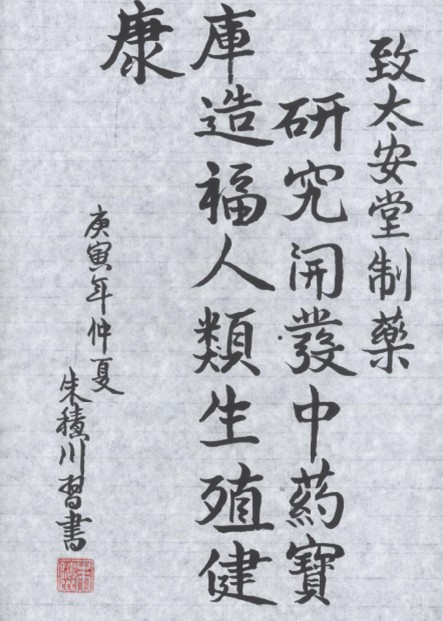 致太安堂制藥
研究開發中药寶
庫造福人類生殖健
康
庚寅年仲夏
朱積川習書